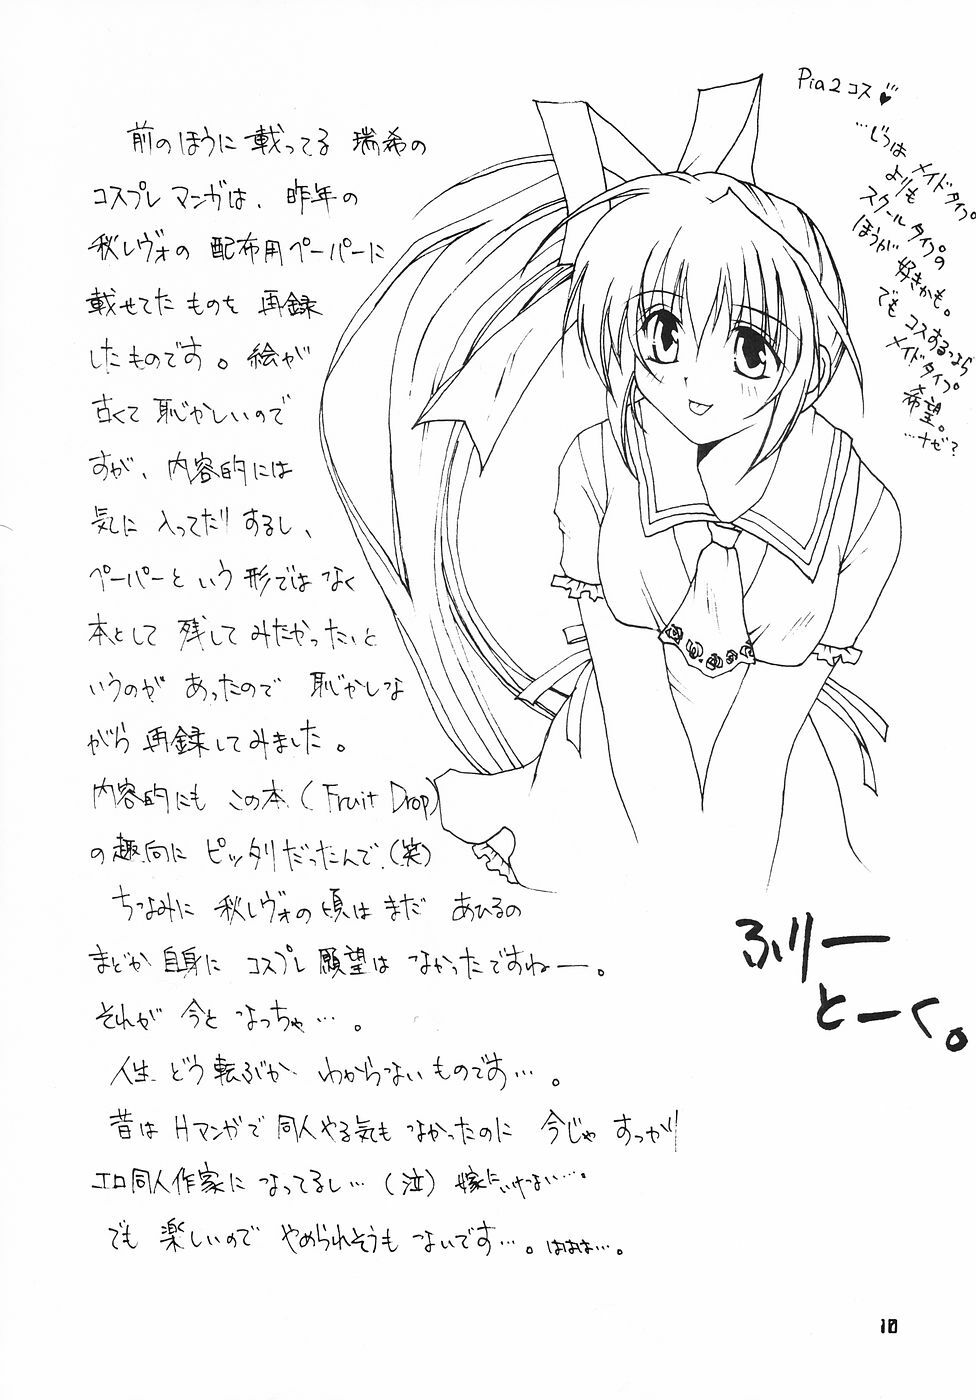 前のほうに載ってる 瑞希の
コスプレマンガは、昨年の
秋レヴォの 配布用ペーパーに
載せてた ものを 再録
したものです。絵が
古くて 恥かしいので
すが、内容的には
気に 入ってたりするし、
ペーパーという形ではなく
本として 残してみたかったいと
いうのが あったので 恥かしな
がら 再録してみました。
内容的にも この本(Fruit Drop)
の趣向に ピッタリだったんで(笑)
ちなみに 秋レヴォの頃は まだ あひるの
まどか自身に コスプレ願望は なかったですねー。
それが 今と なっちゃ…。
人生 どう転ぶか わからないものです…。
昔は Hマンガで 同人やる気も なかったのに 今じゃ すっかり
エロ同人作家に なってるし…(泣) 嫁にいけない…。
でも 楽しいので やめられそうも ないです…。ははは…。
Pia2コス♥
…じつは メイドタイプ
よりも
スクールタイプの
ほうが 好きかも。
でも コスするなら
メイドタイプ
希望。
…ナゼ?
ふりー
とーく。
10